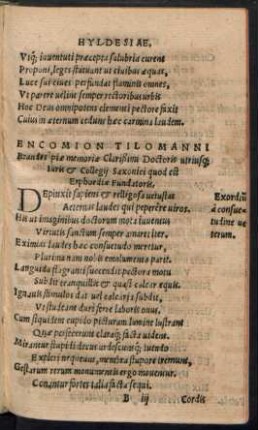 HYLDESIAE,
Vtq́; iuuentuti præcepta salubria curent
Proponi, leges statuant ut ciuibus æquas,
Luce sui ciues perfundat flaminis omnes,
Vt parere uelint semper rectoribus urbis
Hoc Deus omnipotens clementi pectore fixit
Cuius in æternum cedunt hæc carmina laudem.
ENCOMION TILOMANNI
Brandes piæ memoriæ Clarissimi Doctoris utriusq́;
Iuris & Collegij Saxonici quod est
Erphordiæ Fundatoris.
DEpinxit sapiens & religiosa uetustas
Aeternis laudes qui peperere uiros.
His ut imaginibus doctorum mota iuuentus
Virtutis sanctum semper amaret iter.
Eximias laudes hæc consuetudo meretur,
Plurima nam nobis emolumenta parit.
Languida flagranti succendit pectora motu
Sub sit tranquillis & quasi calcar equis.
Ignauis stimulos dat uel calcaria subdit,
Vt studeant duri ferre laboris onus.
Cum siquidem cupido picturam lumine lustrant
Quæ perfecerunt claraq́; facta uident.
Mirantur stupidi decurrunt
Expleri nequeunt, membra stupore tremunt,
Gestarum rerum monumenta ergo mouentur.
Conantur fortes talia facta sequi.
Exordiũ
à consue-
tudine ue
terum.
B iij Cordis